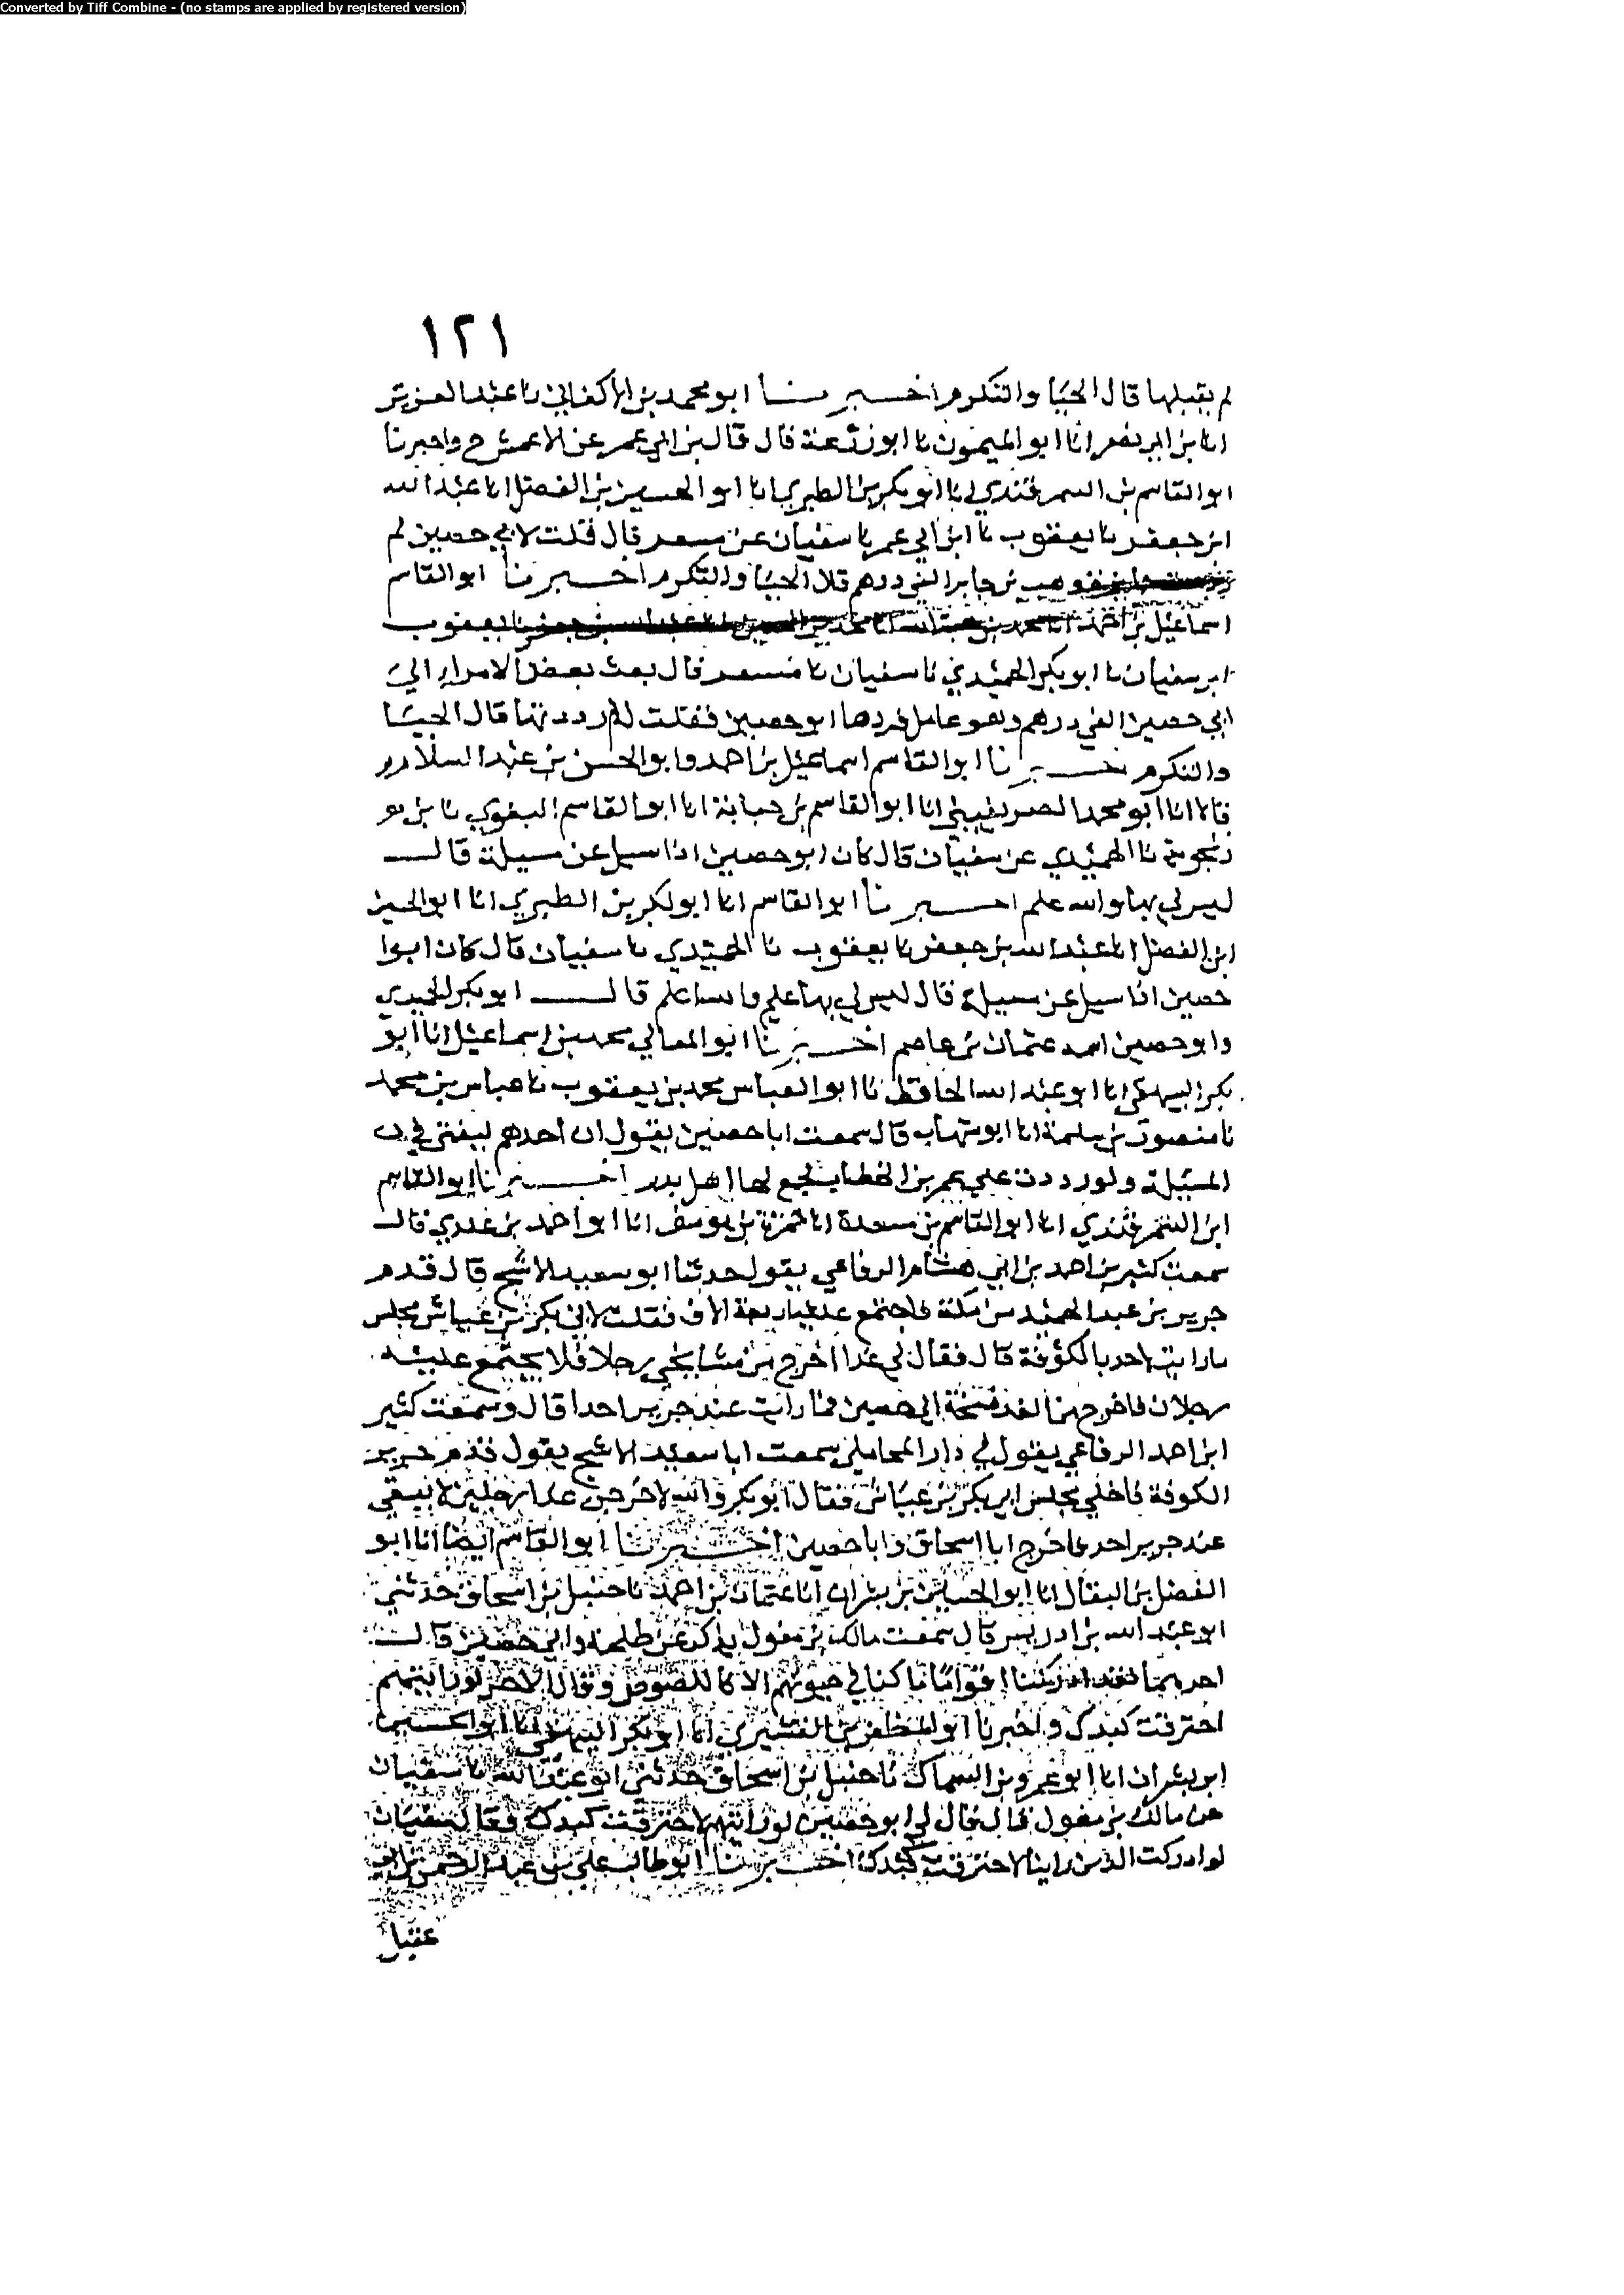 Converted by Tiff Combine - (no stamps are applied by registered version)
١٢١
لم يقبلها قال الحيا والتكرم اخبرنا ابو محمد بن الاكفاني نا عبد العزيز
انا بن ابي نصر انا ابو الميمون نا ابو زرعة قال قال بن ابي عمر عن الاعمش ح واخبرنا
ابو القاسم بن السمرقندي انا ابو بكر بن الطبري انا ابو الحسين بن الفضل انا عبد الله
ابن جعفر نا يعقوب نا ابن ابي عمر نا سفيان عن مسعر قال قلت لابي حصين لم
بن جابر الفي درهم قلا الحيا والتكرم اخبرنا ابو القاسم
اسماعيل بن احمد انا محمد بن هبة الله انا محمد بن الحسين انا عبد الله بن جعفر نا يعقوب
ابن سفيان نا ابو بكر الحميدي نا سفيان نا مسعر قال بعث بعض الامراء الى
ابي حصين الفي درهم وهو عامل فردها ابو حصين فقلت لم رددتها قال الحيا
والتكرم اخبرنا ابو القاسم اسماعيل بن احمد وابو الحسن بن عبد السلام
قالا انا ابو محمد الصريفيني انا ابو القاسم بن حبابة انا ابو القاسم البغوي نا بن
زنجويه نا الحميدي عن سفيان قال كان ابو حصين اذا سيل عن مسيلة قال
ليس لي بها والله علم اخبرنا ابو القاسم انا ابو بكر بن الطبري انا ابو الحسين
ابن الفضل انا عبد الله بن جعفر نا يعقوب نا الحميدي نا سفيان قال كان ابوا
حصين اذا سيل عن مسيلة قال ليس لي بها علم والله اعلم قال ابو بكر الحميدي
وابو حصين اسمه عثمان بن عاصم اخبرنا ابو المعالي محمد بن اسماعيل انا ابو
بكر البيهقي انا ابو عبد الله الحافظ نا ابو العباس محمد بن يعقوب نا عباس بن محمد
نا منصور بن سلمة انا ابو شهاب قال سمعت ابا حصين يقول ان احدهم ليفتي في
المسيلة ولو وردت على عمر بن الخطاب لجمع لها اهل بدر اخبرنا ابو القاسم
ابن السمرقندي انا ابو القاسم بن مسعدة انا حمزة بن يوسف انا ابو احمد بن عدي قال
سمعت كثير بن احمد بن ابي هشام الرفاعي يقول حدثنا ابو سعيد الاشج قال قدم
جرير بن عبد الحميد من مكة فاجتمع عليه اربعة الاف فقلت لابي بكر بن عياش مجلس
ما رايت لاحد بالكوفة قال فقال لي غدا اخرج من مشايخي رجلا فلا يجتمع عليه
رجلان فاخرج من الغد نسخة ابي حصين فما رايت عند جرير احدا قال وسمعت كثير
ابن احمد الرفاعي يقول في دار المحاملي سمعت ابا سعيد الاشج يقول قدم جرير
الكوفة فاخلي مجلس ابي بكر بن عياش فقال ابو بكر والله لاخرجن غدا رجلين لا يبقى
عند جرير احد فاخرج ابا اسحاق وابا حصين اخبرنا ابو القاسم ايضا انا ابو
الفضل بن البقال انا ابو الحسين بن بشران انا عثمان بن احمد نا حنبل بن اسحاق حدثني
ابو عبد الله بن ادريس قال سمعت مالك بن مغول يذكر عن طلحة وابي حصين قال
احدهما لقد ادركنا اقواما ما كنا في جنوبهم الا كاللصوص وقال الاخر لو رايتهم
احترقت كبدك واخبرنا ابو المظفر بن القشيري انا ابو بكر البيهقي انا ابو الحسين
ابن بشران انا ابو عمرو بن السماك نا حنبل بن اسحاق حدثني ابو عبد الله نا سفيان
عن مالك بن مغول قال قال لي ابو حصين لو رايتهم لاحترقت كبدك وقال سفيان
لو ادركت الذين راينا لاحترقت كبدك اخبرنا ابو طالب علي بن عبد الرحمن بن ابي
عقيل